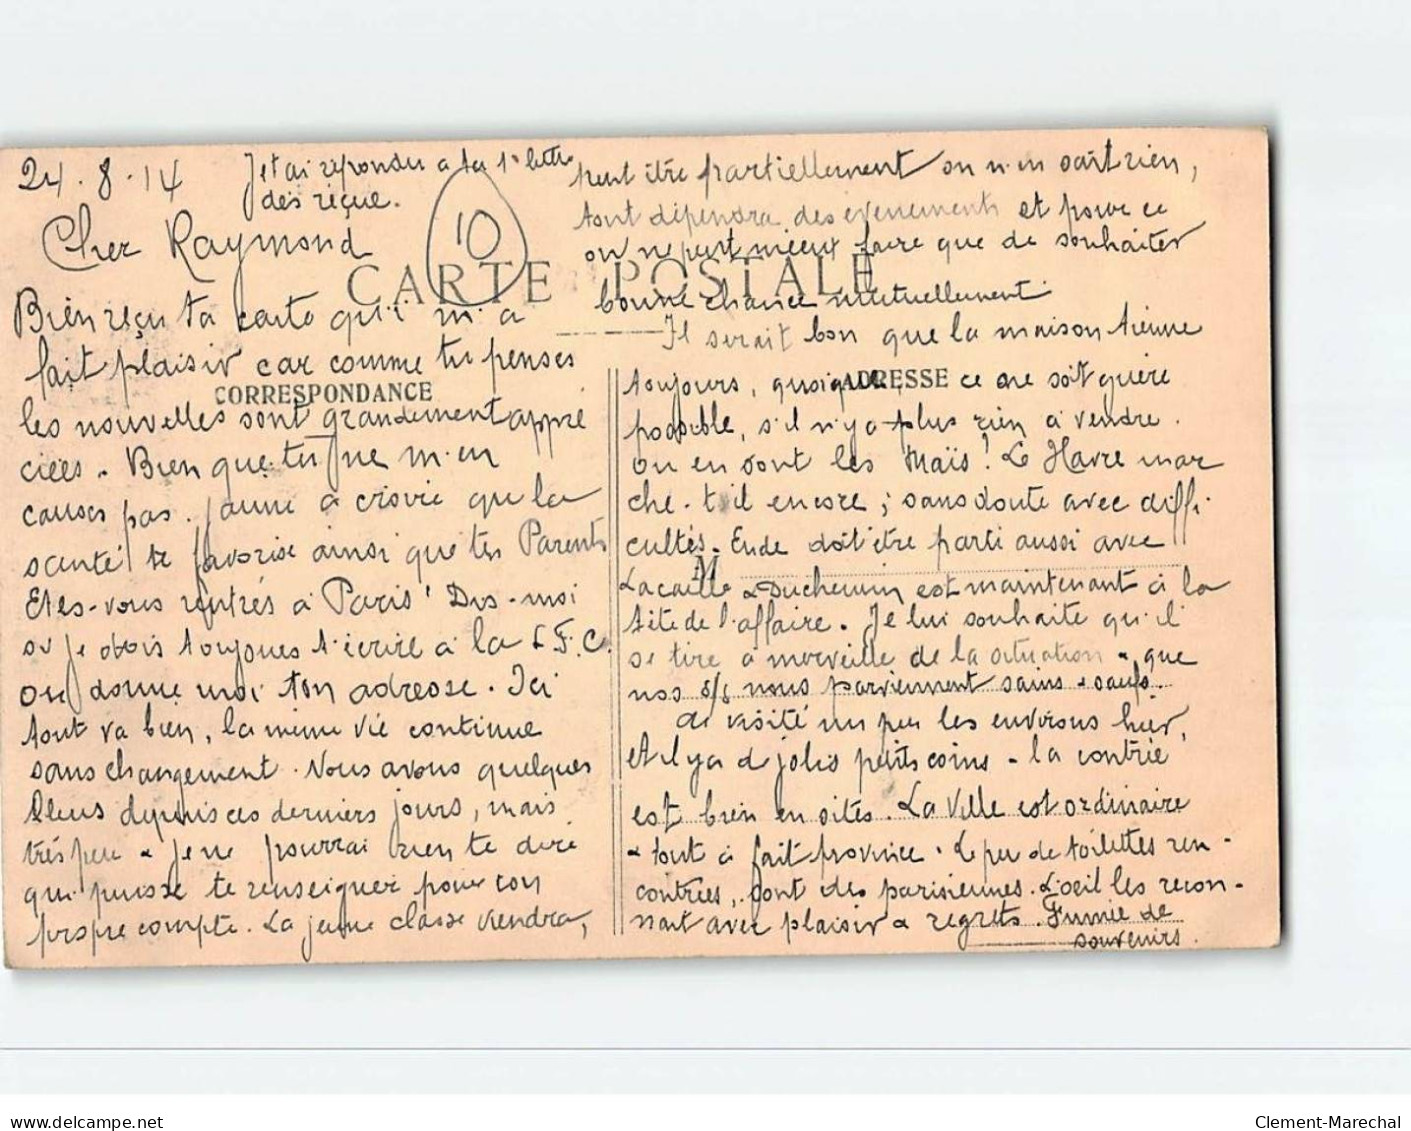 24.8.14
Je t'ai répondu a ta 1e lettre
dès reçue.
10
Cher Raymond
CARTE POSTALE
Bien reçu ta carte qui m'a
fait plaisir car comme tu penses
CORRESPONDANCE
les nouvelles sont grandement appré
ciées. Bien que tu ne m'en
causes pas. J'aime à croire que la
santé te favorise ainsi que tes Parents
Etes-vous rentrés à Paris! Dis-moi
où je dois toujours t'écrire à la L.F.C.
ou donne moi ton adresse. Ici
tout va bien, la même vie continue
sans changement. Nous avons quelques
bleus depuis ces derniers jours, mais
très peu & je ne pourrai rien te dire
qui puisse te renseigner pour ton
propre compte. La jeune classe viendra,
peut être partiellement on n'en sait rien,
tout dépendra des évènements et pour ce
on ne peut mieux faire que de souhaiter
bonne chance mutuellement
Il serait bon que la maison tienne
toujours, quoique, ce ne soit guère
ADRESSE
possible, s'il n'y a plus rien à vendre.
Ou en sont les Maïs! Le Havre mar
che-t-il encore; sans doute avec diffi
cultés. Eude doit être parti aussi avec
M
Lacaille & Duchemin est maintenant à la
tête de l'affaire. Je lui souhaite qu'il
se tire à merveille de la situation & que
nos s/s nous parviennent sains & saufs.
Ai visité un peu les environs hier,
et il y a d jolis petits coins - la contrée
est bien en sites. La Ville est ordinaire
& tout à fait province. Le peu de toilettes ren-
contrées, sont des parisiennes. L'oeil les recon-
nait avec plaisir & regrets. Fumée de
souvenirs.
www.delcampe.net
Clement-Marechal